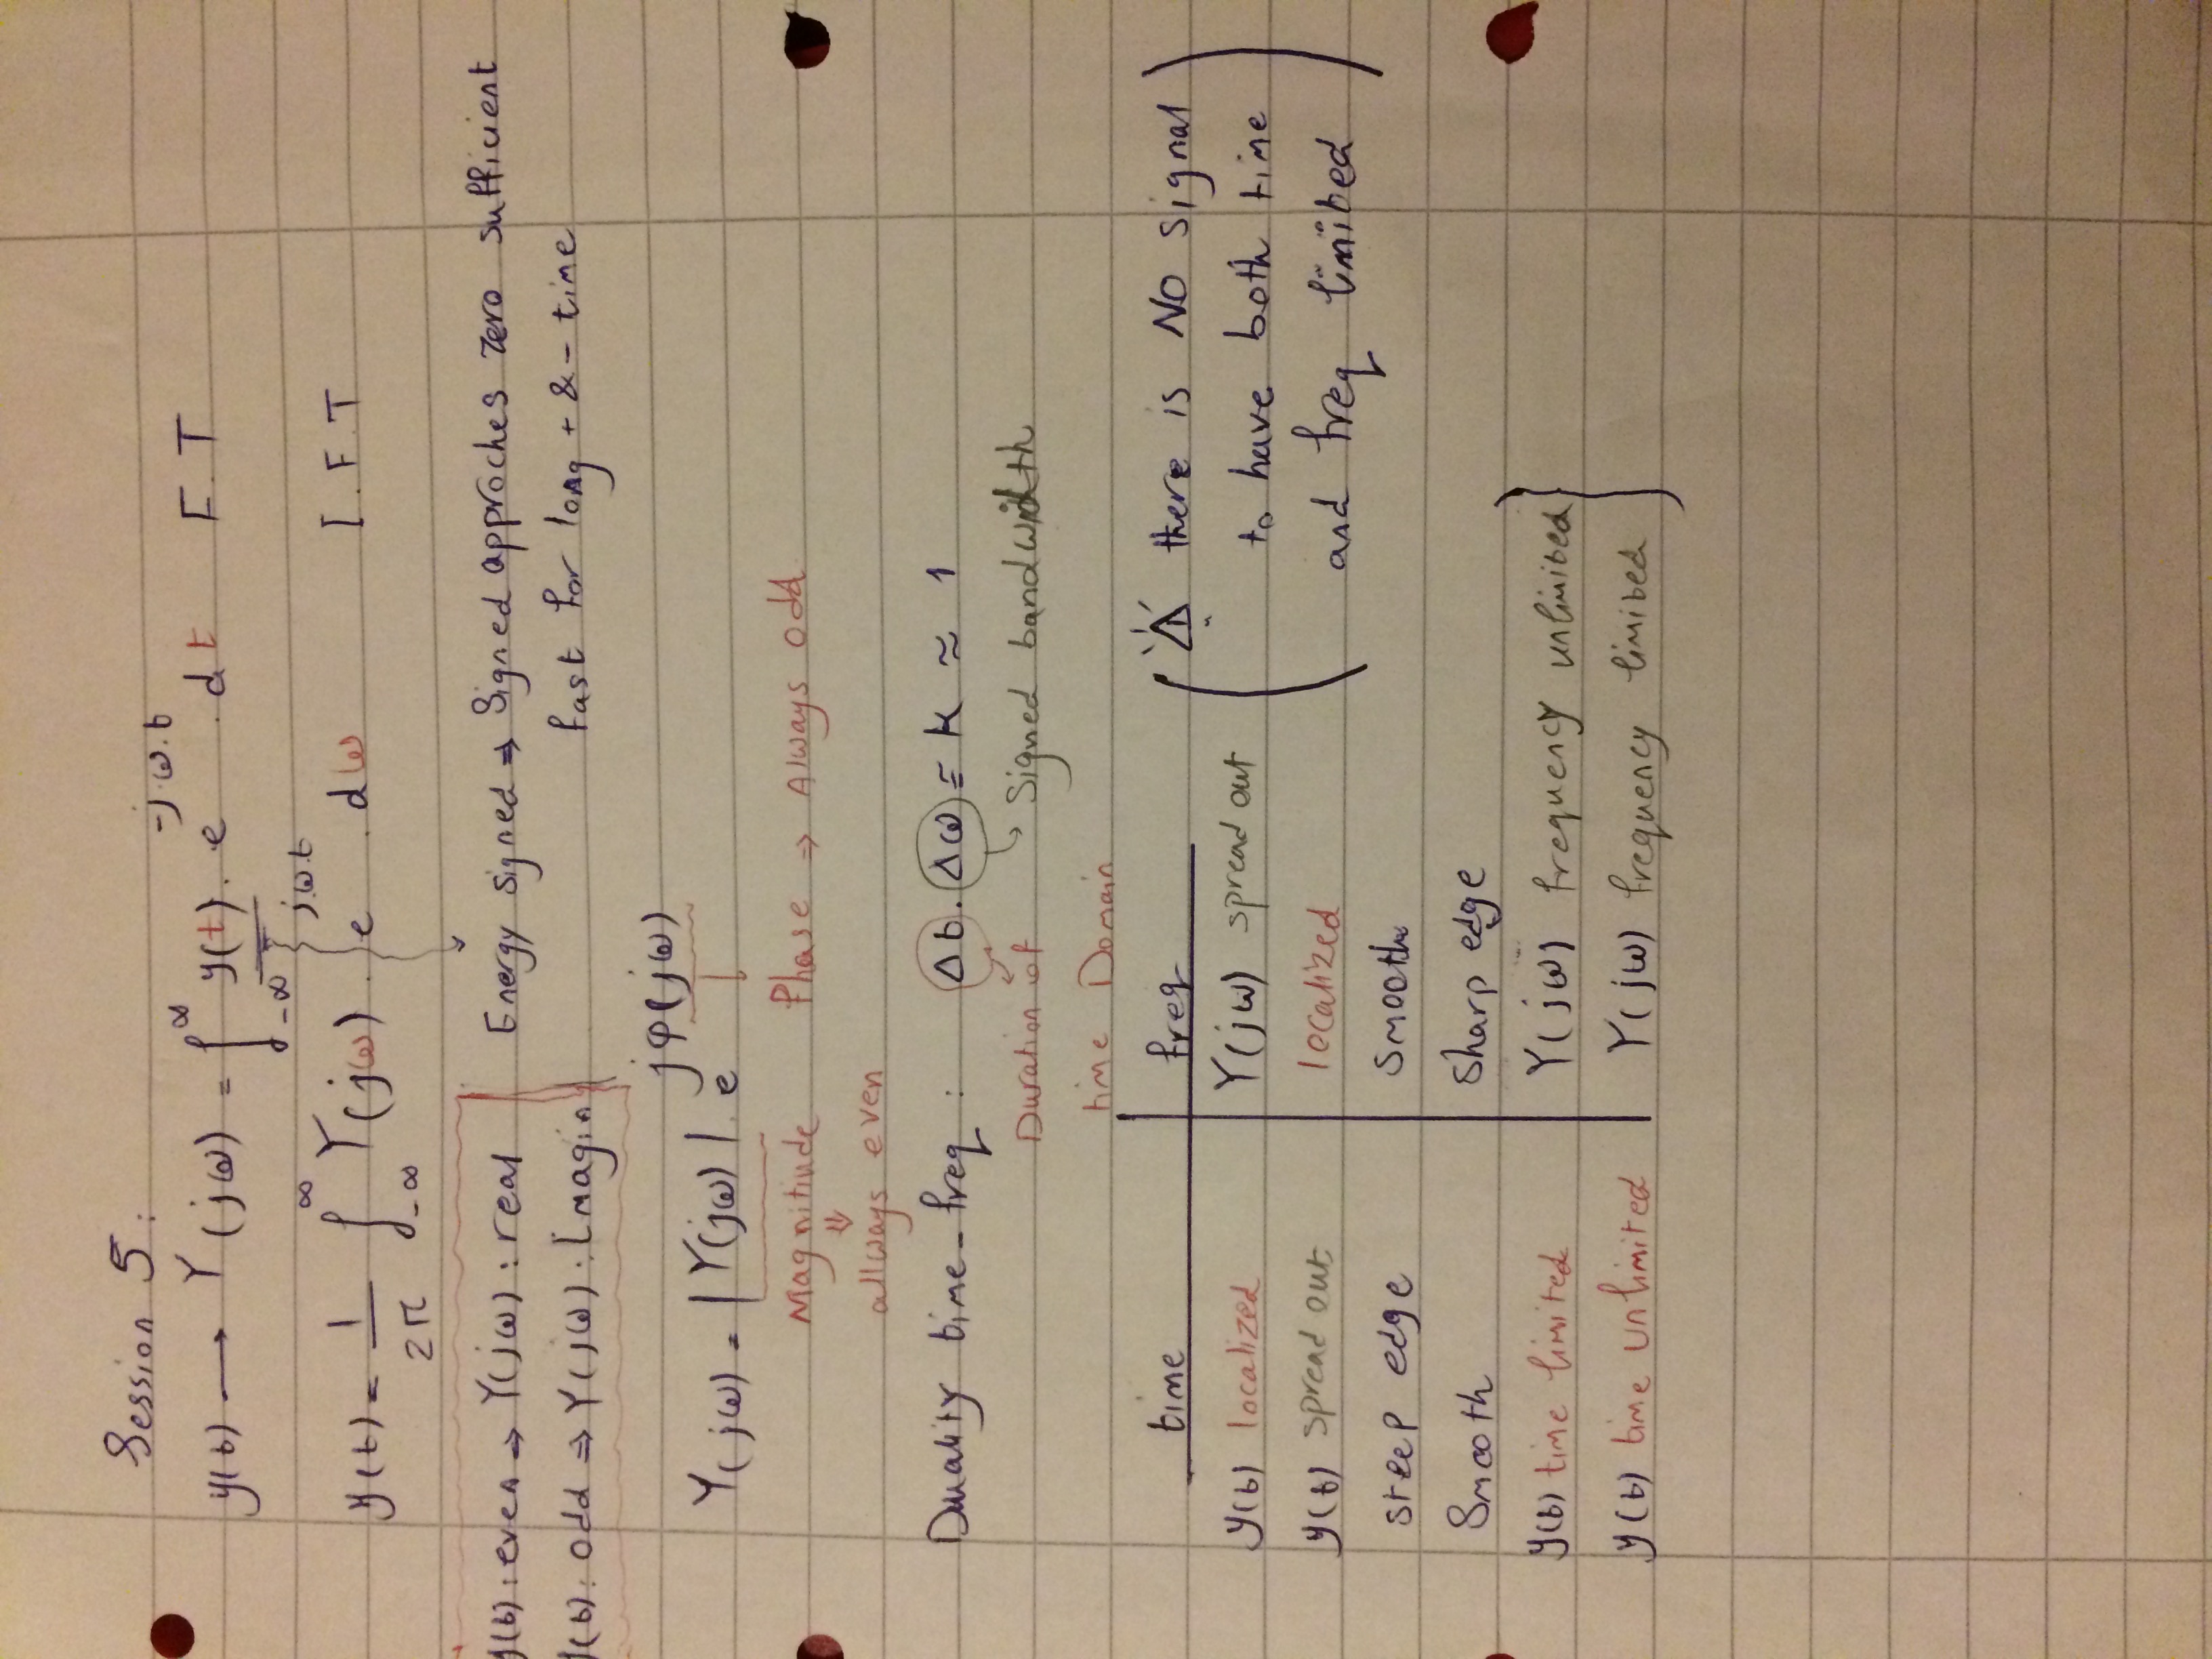 Session 5:
y(t) → Y(jω) = ∫_{-∞}^{∞} y(t) . e^{-j.ω.t} . dt F.T
y(t) = 1/2π ∫_{-∞}^{∞} Y(jω) . e^{j.ω.t} . dω I.F.T
y(t): even ⇒ Y(jω): real
y(t): odd ⇒ Y(jω): Imagin
Energy signed ⇒ Signed approches zero sufficient
fast for long + & - time
Y(jω) = |Y(jω)| . e^{jφ(jω)}
Magnitiude Phase ⇒ Always odd
⇓
allways even
Duality time-freq : Δt . Δω = K ≈ 1
Duration of Signed bandwidth
time Domain
time freq
y(t) localized Y(jω) spread out
y(t) spread out localized
steep edge smooth
Smooth Sharp edge
y(t) time limited Y(jω) frequency unlimited
y(t) time unlimited Y(jω) frequency limited
⚠ there is NO signal
to have both time
and freq limited